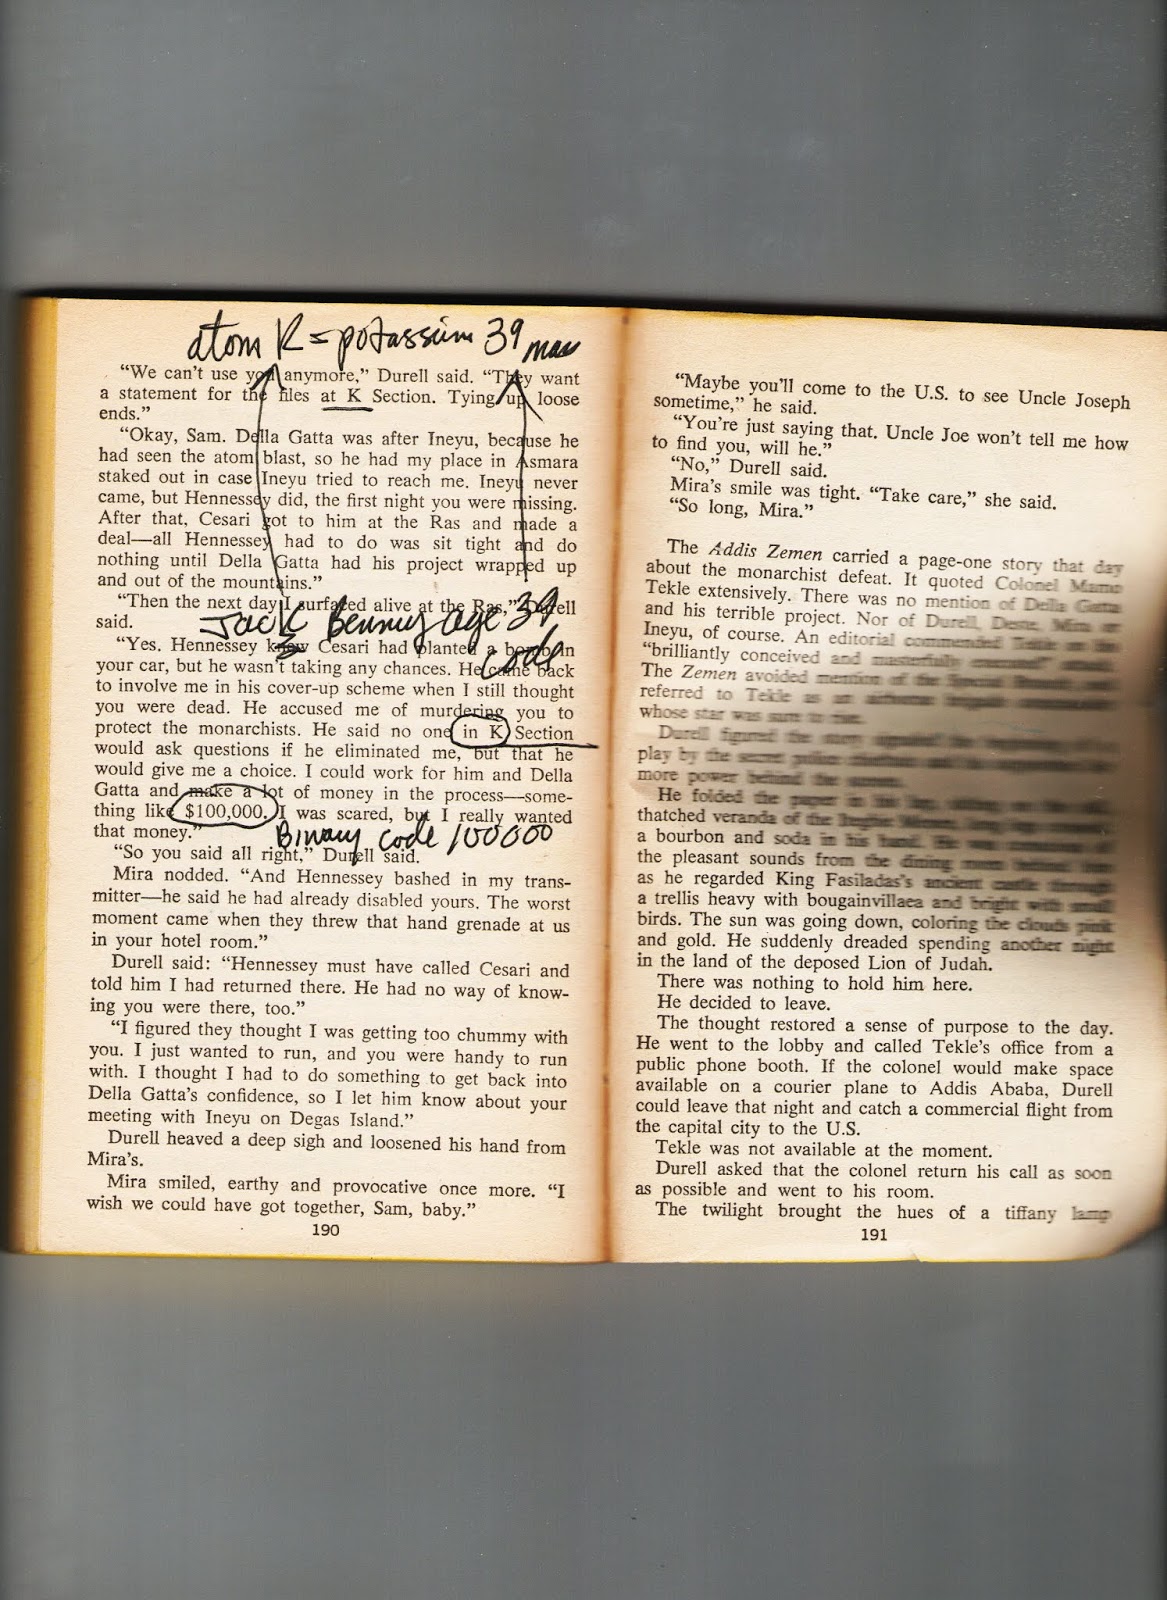 atom K = potassium 39 mass
"We can't use you anymore," Durell said. "They want
a statement for the files at K Section. Tying up loose
ends."
"Okay, Sam. Della Gatta was after Ineyu, because he
had seen the atom blast, so he had my place in Asmara
staked out in case Ineyu tried to reach me. Ineyu never
came, but Hennessey did, the first night you were missing.
After that, Cesari got to him at the Ras and made a
deal—all Hennessey had to do was sit tight and do
nothing until Della Gatta had his project wrapped up
and out of the mountains."
"Then the next day I surfaced alive at the Ras," Durell
said.
Jack Benny age 39
code
"Yes. Hennessey knew Cesari had planted a bomb in
your car, but he wasn't taking any chances. He came back
to involve me in his cover-up scheme when I still thought
you were dead. He accused me of murdering you to
protect the monarchists. He said no one in K Section
would ask questions if he eliminated me, but that he
would give me a choice. I could work for him and Della
Gatta and make a lot of money in the process—some-
thing like $100,000. I was scared, but I really wanted
that money."
Binary code 100000
"So you said all right," Durell said.
Mira nodded. "And Hennessey bashed in my trans-
mitter—he said he had already disabled yours. The worst
moment came when they threw that hand grenade at us
in your hotel room."
Durell said: "Hennessey must have called Cesari and
told him I had returned there. He had no way of know-
ing you were there, too."
"I figured they thought I was getting too chummy with
you. I just wanted to run, and you were handy to run
with. I thought I had to do something to get back into
Della Gatta's confidence, so I let him know about your
meeting with Ineyu on Degas Island."
Durell heaved a deep sigh and loosened his hand from
Mira's.
Mira smiled, earthy and provocative once more. "I
wish we could have got together, Sam, baby."
190
"Maybe you'll come to the U.S. to see Uncle Joseph
sometime," he said.
"You're just saying that. Uncle Joe won't tell me how
to find you, will he."
"No," Durell said.
Mira's smile was tight. "Take care," she said.
"So long, Mira."
The Addis Zemen carried a page-one story that day
about the monarchist defeat. It quoted Colonel Mamo
Tekle extensively. There was no mention of Della Gatta
and his terrible project. Nor of Durell, Mira or
Ineyu, of course. An editorial commended Tekle on the
"brilliantly conceived and masterfully
The Zemen avoided mention of the
referred to Tekle as an
whose star was sure to rise.
Durell figured the story
play by the secret
more power behind the scenes.
He folded the paper in his lap, sitting on the
thatched veranda of the
a bourbon and soda in his hand. He was
the pleasant sounds from the dining room behind him
as he regarded King Fasiladas's ancient castle through
a trellis heavy with bougainvillaea and bright with small
birds. The sun was going down, coloring the clouds pink
and gold. He suddenly dreaded spending another night
in the land of the deposed Lion of Judah.
There was nothing to hold him here.
He decided to leave.
The thought restored a sense of purpose to the day.
He went to the lobby and called Tekle's office from a
public phone booth. If the colonel would make space
available on a courier plane to Addis Ababa, Durell
could leave that night and catch a commercial flight from
the capital city to the U.S.
Tekle was not available at the moment.
Durell asked that the colonel return his call as soon
as possible and went to his room.
The twilight brought the hues of a tiffany lamp
191